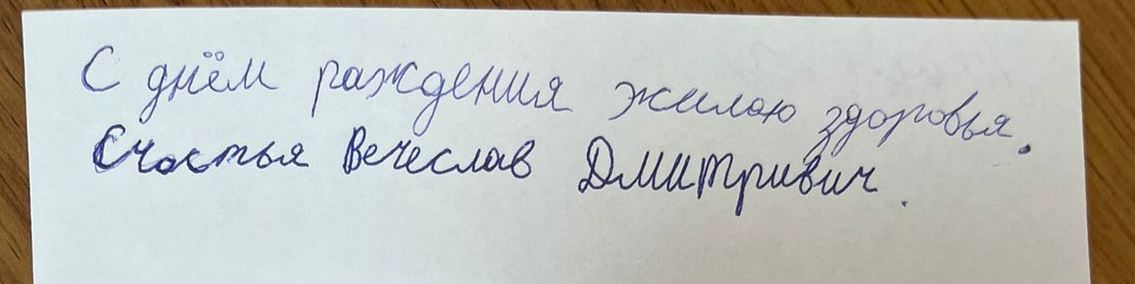 С днём раждения жилаю здоровья.
Счастья Вечеслав Дмитривич.